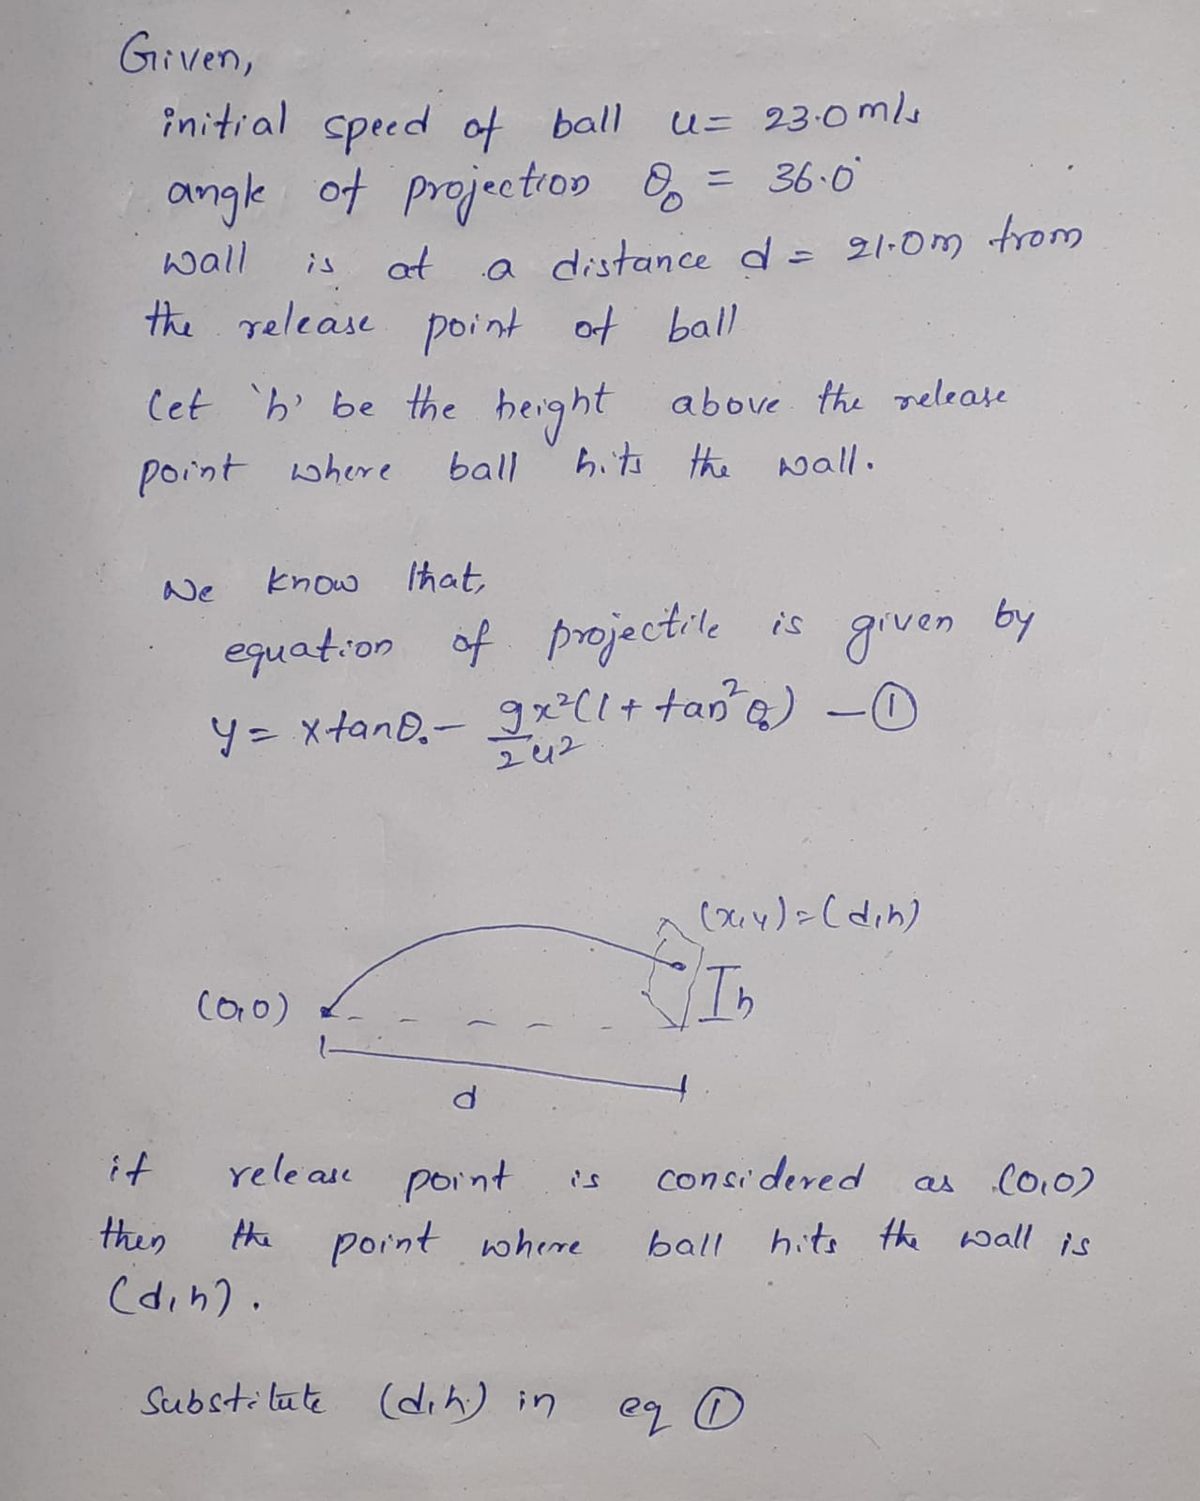 Given,
initial speed of ball u = 23.0 m/s
angle of projection θ₀ = 36.0°
wall is at a distance d = 21.0m from
the release point of ball
Let 'h' be the height above the release
point where ball hits the wall.
We know that,
equation of projectile is given by
y = x tanθ₀ - gx²/2u² (1 + tan²θ₀) - ①
(x,y) = (d,h)
(0,0)
h
d
if release point is considered as (0,0)
then the point where ball hits the wall is
(d,h).
Substitute (d,h) in eq ①